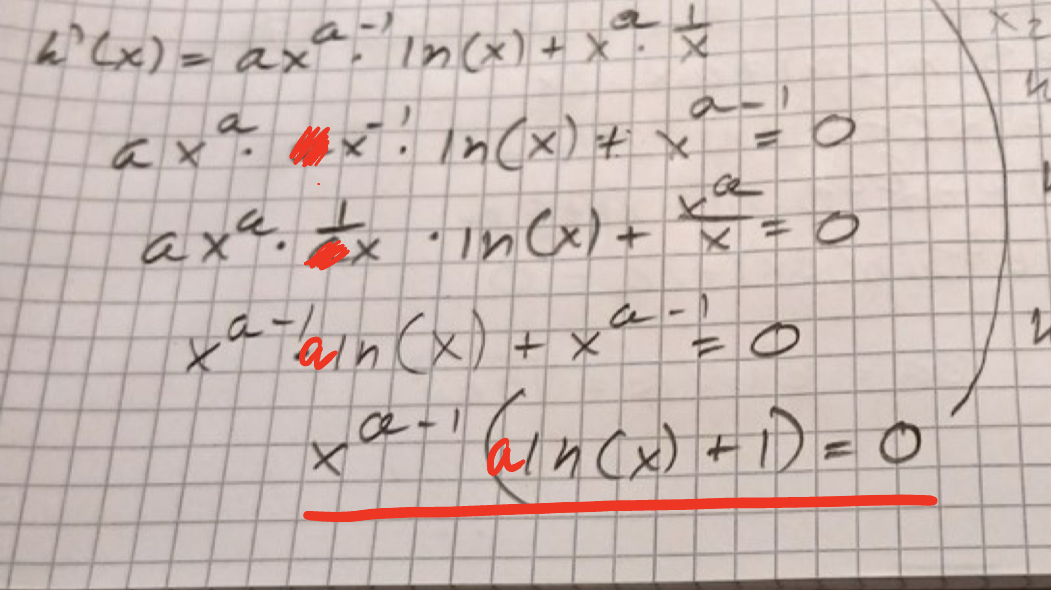 h'(x) = ax^{a-1} · ln(x) + x^a · 1/x
ax^a · x^{-1} · ln(x) + x^{a-1} = 0
ax^a · 1/x · ln(x) + x^a/x = 0
x^{a-1} a ln(x) + x^{a-1} = 0
x^{a-1} (a ln(x) + 1) = 0
x2